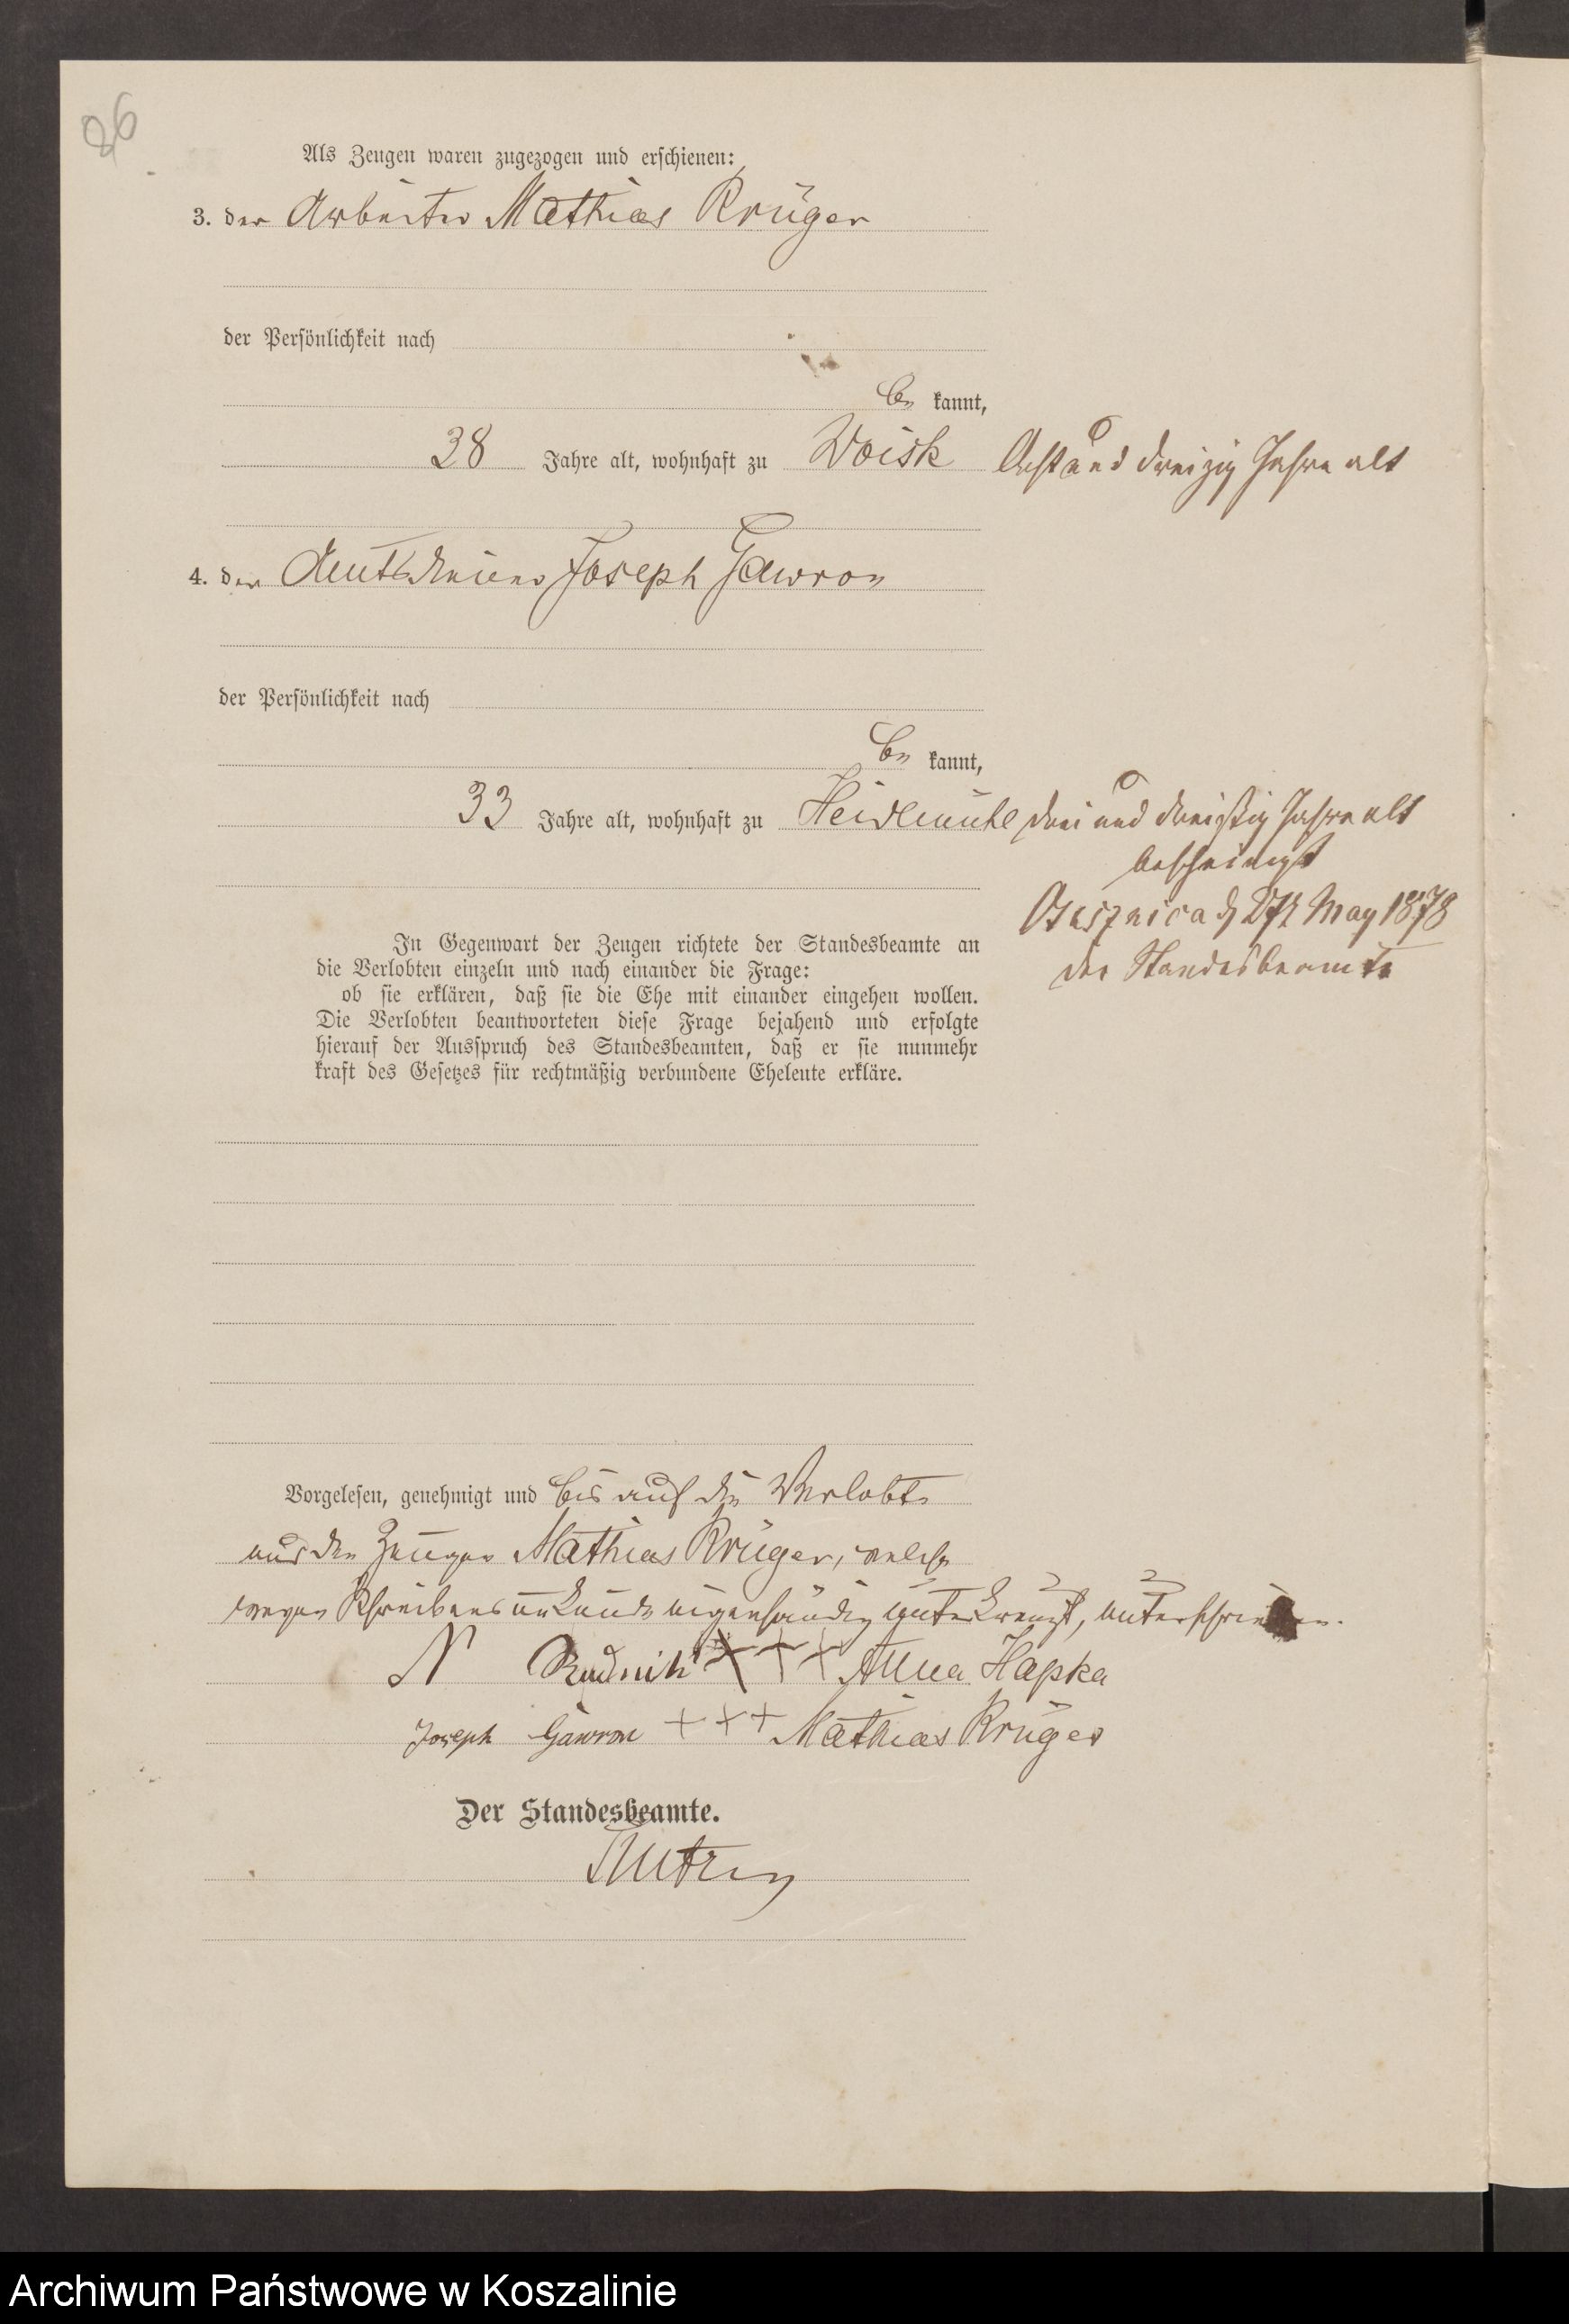 26
Als Zeugen waren zugezogen und erschienen:
3. der Arbeiter Mathias Krüger
der Persönlichkeit nach
be kannt,
38 Jahre alt, wohnhaft zu Woisk
Acht und dreizig Jahre alt
4. der Amtsdiener Joseph Gawron
der Persönlichkeit nach
be kannt,
33 Jahre alt, wohnhaft zu Heidemühl
drei und dreißig Jahre alt
bescheinigt
Ossusznica d 27t May 1878
der Standesbeamte
In Gegenwart der Zeugen richtete der Standesbeamte an
die Verlobten einzeln und nach einander die Frage:
ob sie erklären, daß sie die Ehe mit einander eingehen wollen.
Die Verlobten beantworteten diese Frage bejahend und erfolgte
hierauf der Ausspruch des Standesbeamten, daß er sie nunmehr
kraft des Gesetzes für rechtmäßig verbundene Eheleute erkläre.
Vorgelesen, genehmigt und bis auf die Verlobte
und den Zeugen Mathias Krüger, welche
wegen Schreibensunkunde eigenhändig unterkreuzt, unterschrieben.
N Rudnik +++ Anna Hapka
Joseph Gawron +++ Mathias Krüger
Der Standesbeamte.
Archiwum Państwowe w Koszalinie